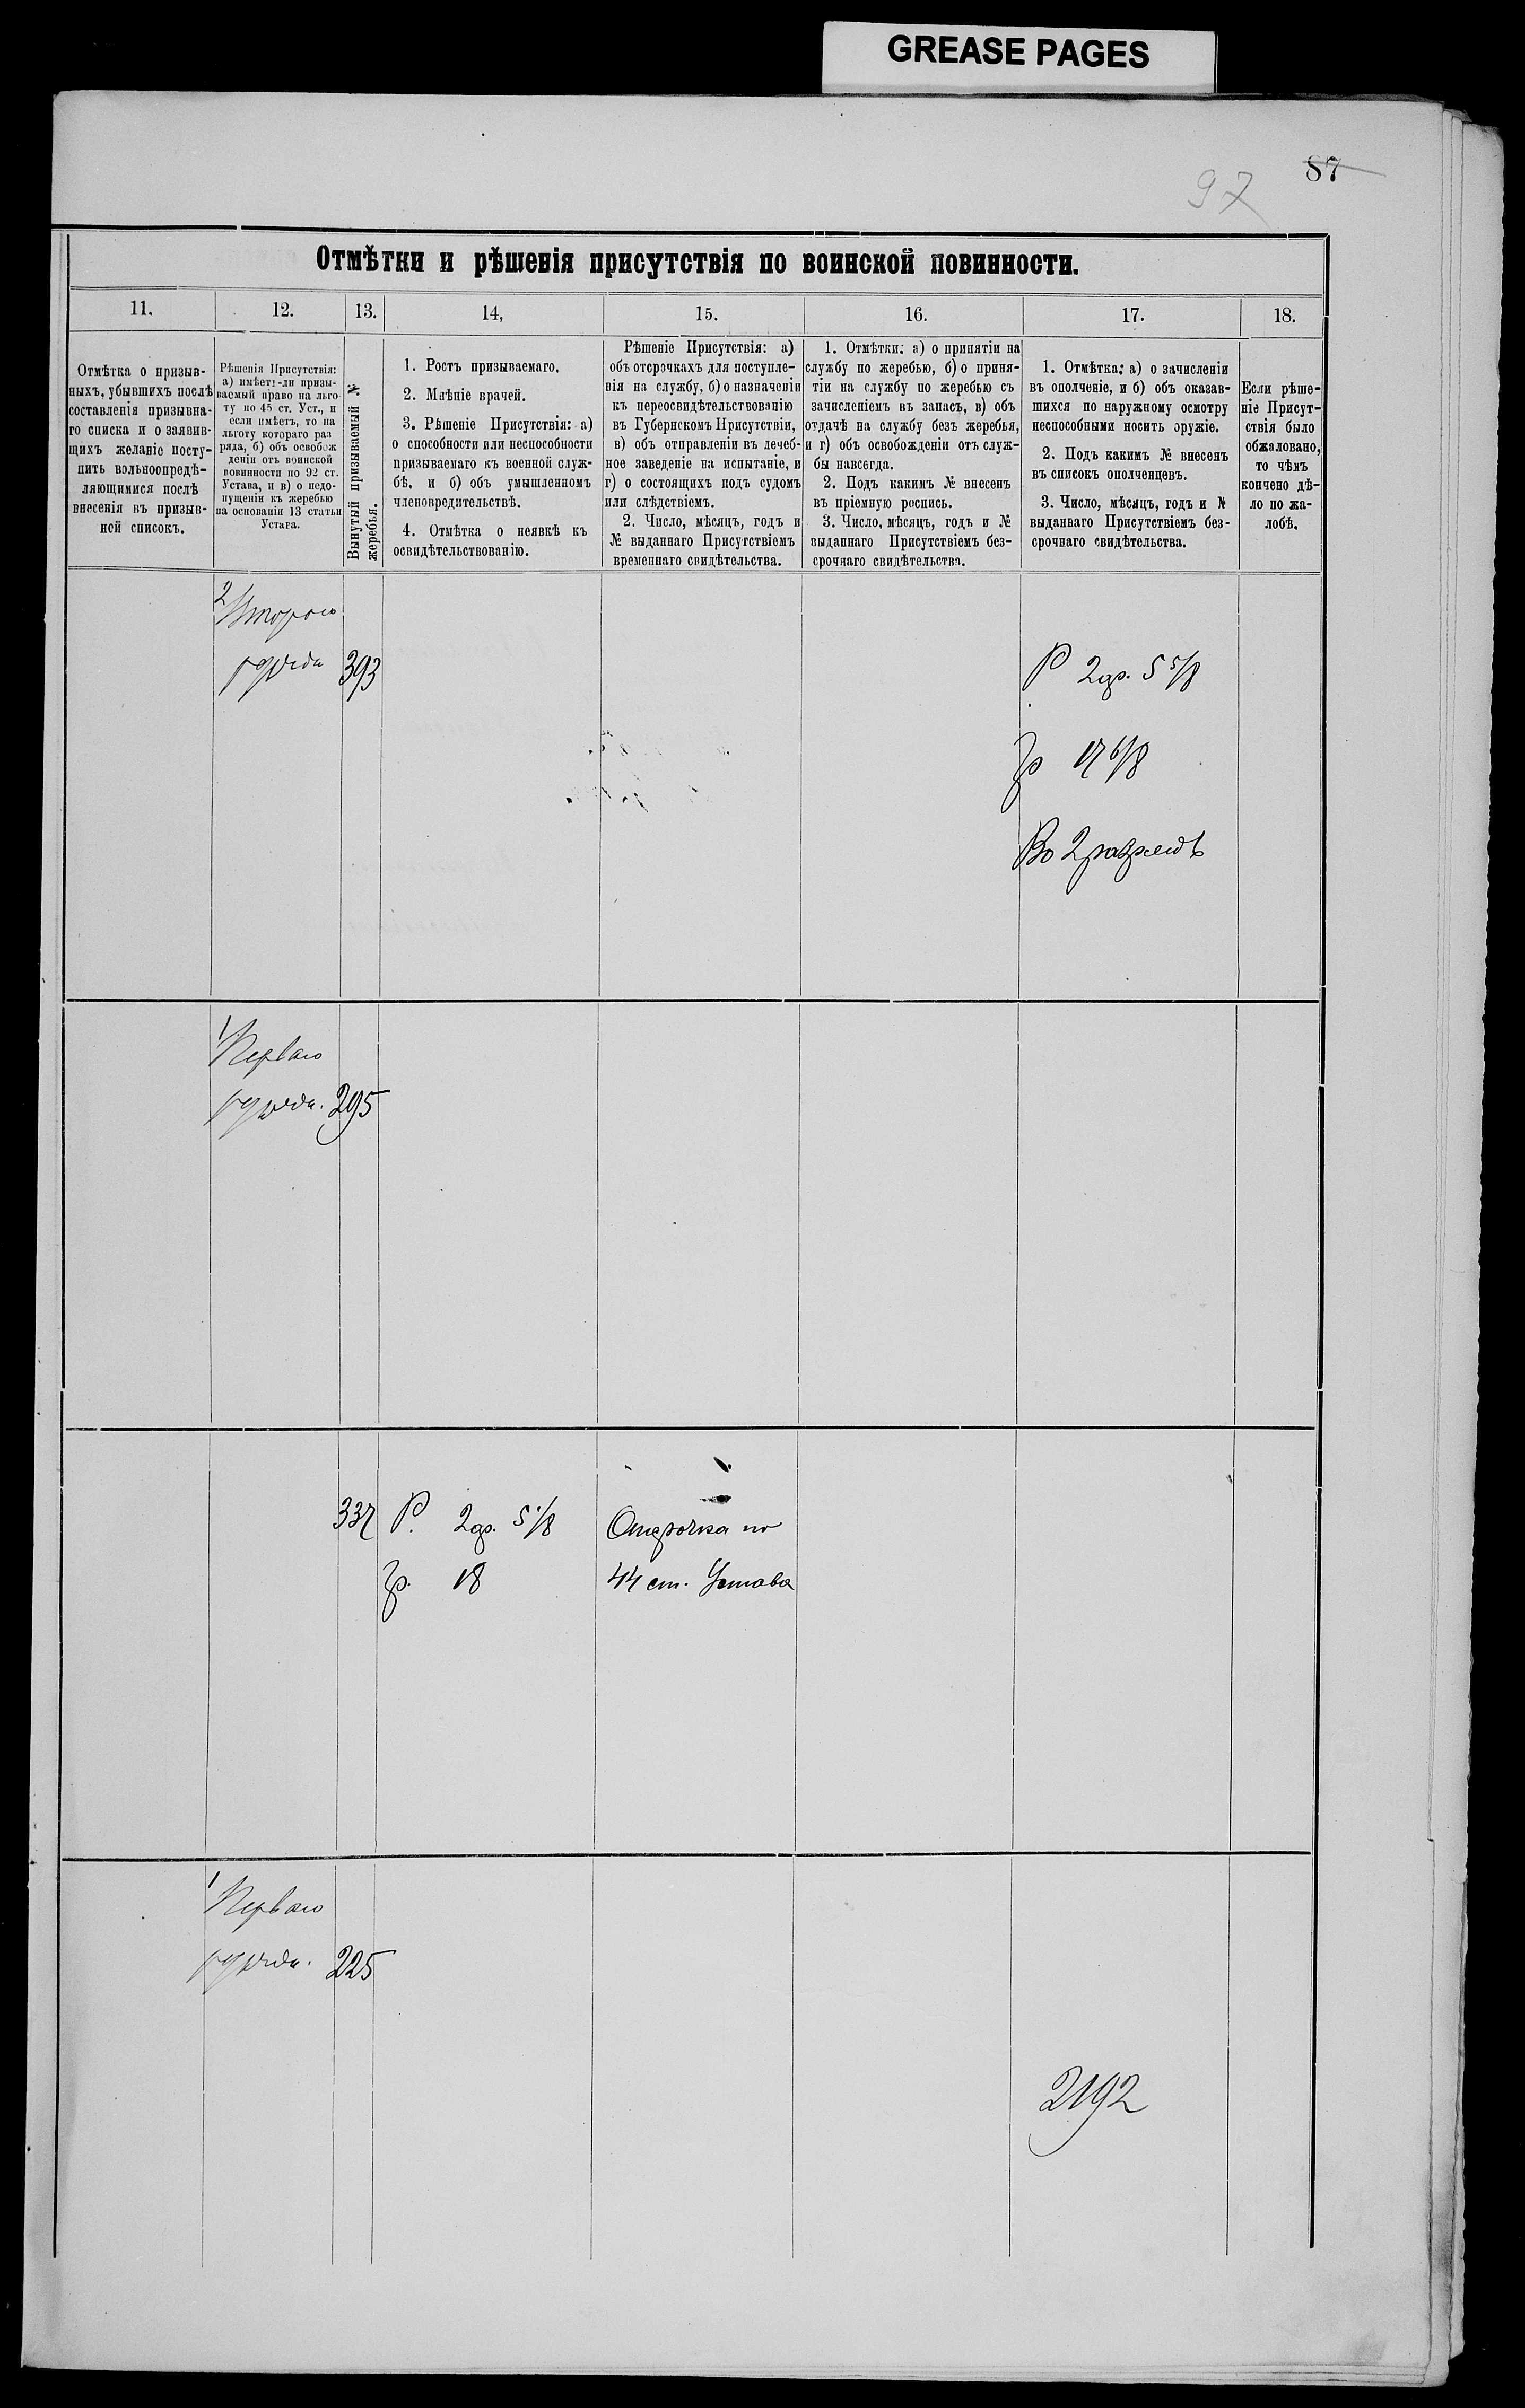 GREASE PAGES
87
97
Отмѣтки и рѣшенія присутствія по воинской повинности.
11.
12.
13.
14,
15.
16.
17.
18.
Отмѣтка о призыв-
ныхъ, убывшихъ послѣ
составленія призывна-
го списка и о заявив-
щихъ желаніе посту-
пить вольноопредѣ-
ляющимися послѣ
внесенія въ призыв-
ной списокъ.
Рѣшенія Присутствія:
а) имѣетъ-ли призы-
ваемый право на льго
ту по 45 ст. Уст., и
если имѣетъ, то на
льготу котораго раз
ряда, б) объ освобож
деніи отъ воинской
повинности по 92 ст.
Устава, и в) о недо-
пущеніи къ жеребью
на основаніи 13 статьи
Устава.
Вынутый призываемый №
жеребья.
1. Ростъ призываемаго.
2. Мнѣніе врачей.
3. Рѣшеніе Присутствія: а)
о способности или неспособности
призываемаго къ военной служ-
бѣ, и б) объ умышленномъ
членовредительствѣ.
4. Отмѣтка о неявкѣ къ
освидѣтельствованію.
Рѣшеніе Присутствія: а)
объ отсрочкахъ для поступле-
нія на службу, б) о назначеніи
къ переосвидѣтельствованію
въ Губернскомъ Присутствіи,
в) объ отправленіи въ лечеб-
ное заведеніе на испытаніе, и
г) о состоящихъ подъ судомъ
или слѣдствіемъ.
2. Число, мѣсяцъ, годъ и
№ выданнаго Присутствіемъ
временнаго свидѣтельства.
1. Отмѣтки: а) о принятіи на
службу по жеребью, б) о приня-
тіи на службу по жеребью съ
зачисленіемъ въ запасъ, в) объ
отдачѣ на службу безъ жеребья,
и г) объ освобожденіи отъ служ-
бы навсегда.
2. Подъ какимъ № внесенъ
въ пріемную роспись.
3. Число, мѣсяцъ, годъ и №
выданнаго Присутствіемъ без-
срочнаго свидѣтельства.
1. Отмѣтка: а) о зачисленіи
въ ополченіе, и б) объ оказав-
шихся по наружному осмотру
неспособными носить оружіе.
2. Подъ какимъ № внесенъ
въ списокъ ополченцевъ.
3. Число, мѣсяцъ, годъ и №
выданнаго Присутствіемъ без-
срочнаго свидѣтельства.
Если рѣше-
ніе Присут-
ствія было
обжаловано,
то чѣмъ
кончено дѣ-
ло по жа-
лобѣ.
2
Второго
разряда 393
Р 2 ар. 5 5/8
гр 17 6/8
Во 2 разрядъ
1
Перваго
разряда. 295
337 Р. 2 ар. 5 1/8
Отсрочка по
гр. 18
44 ст. Устава
1
Перваго
разряда. 225
2192